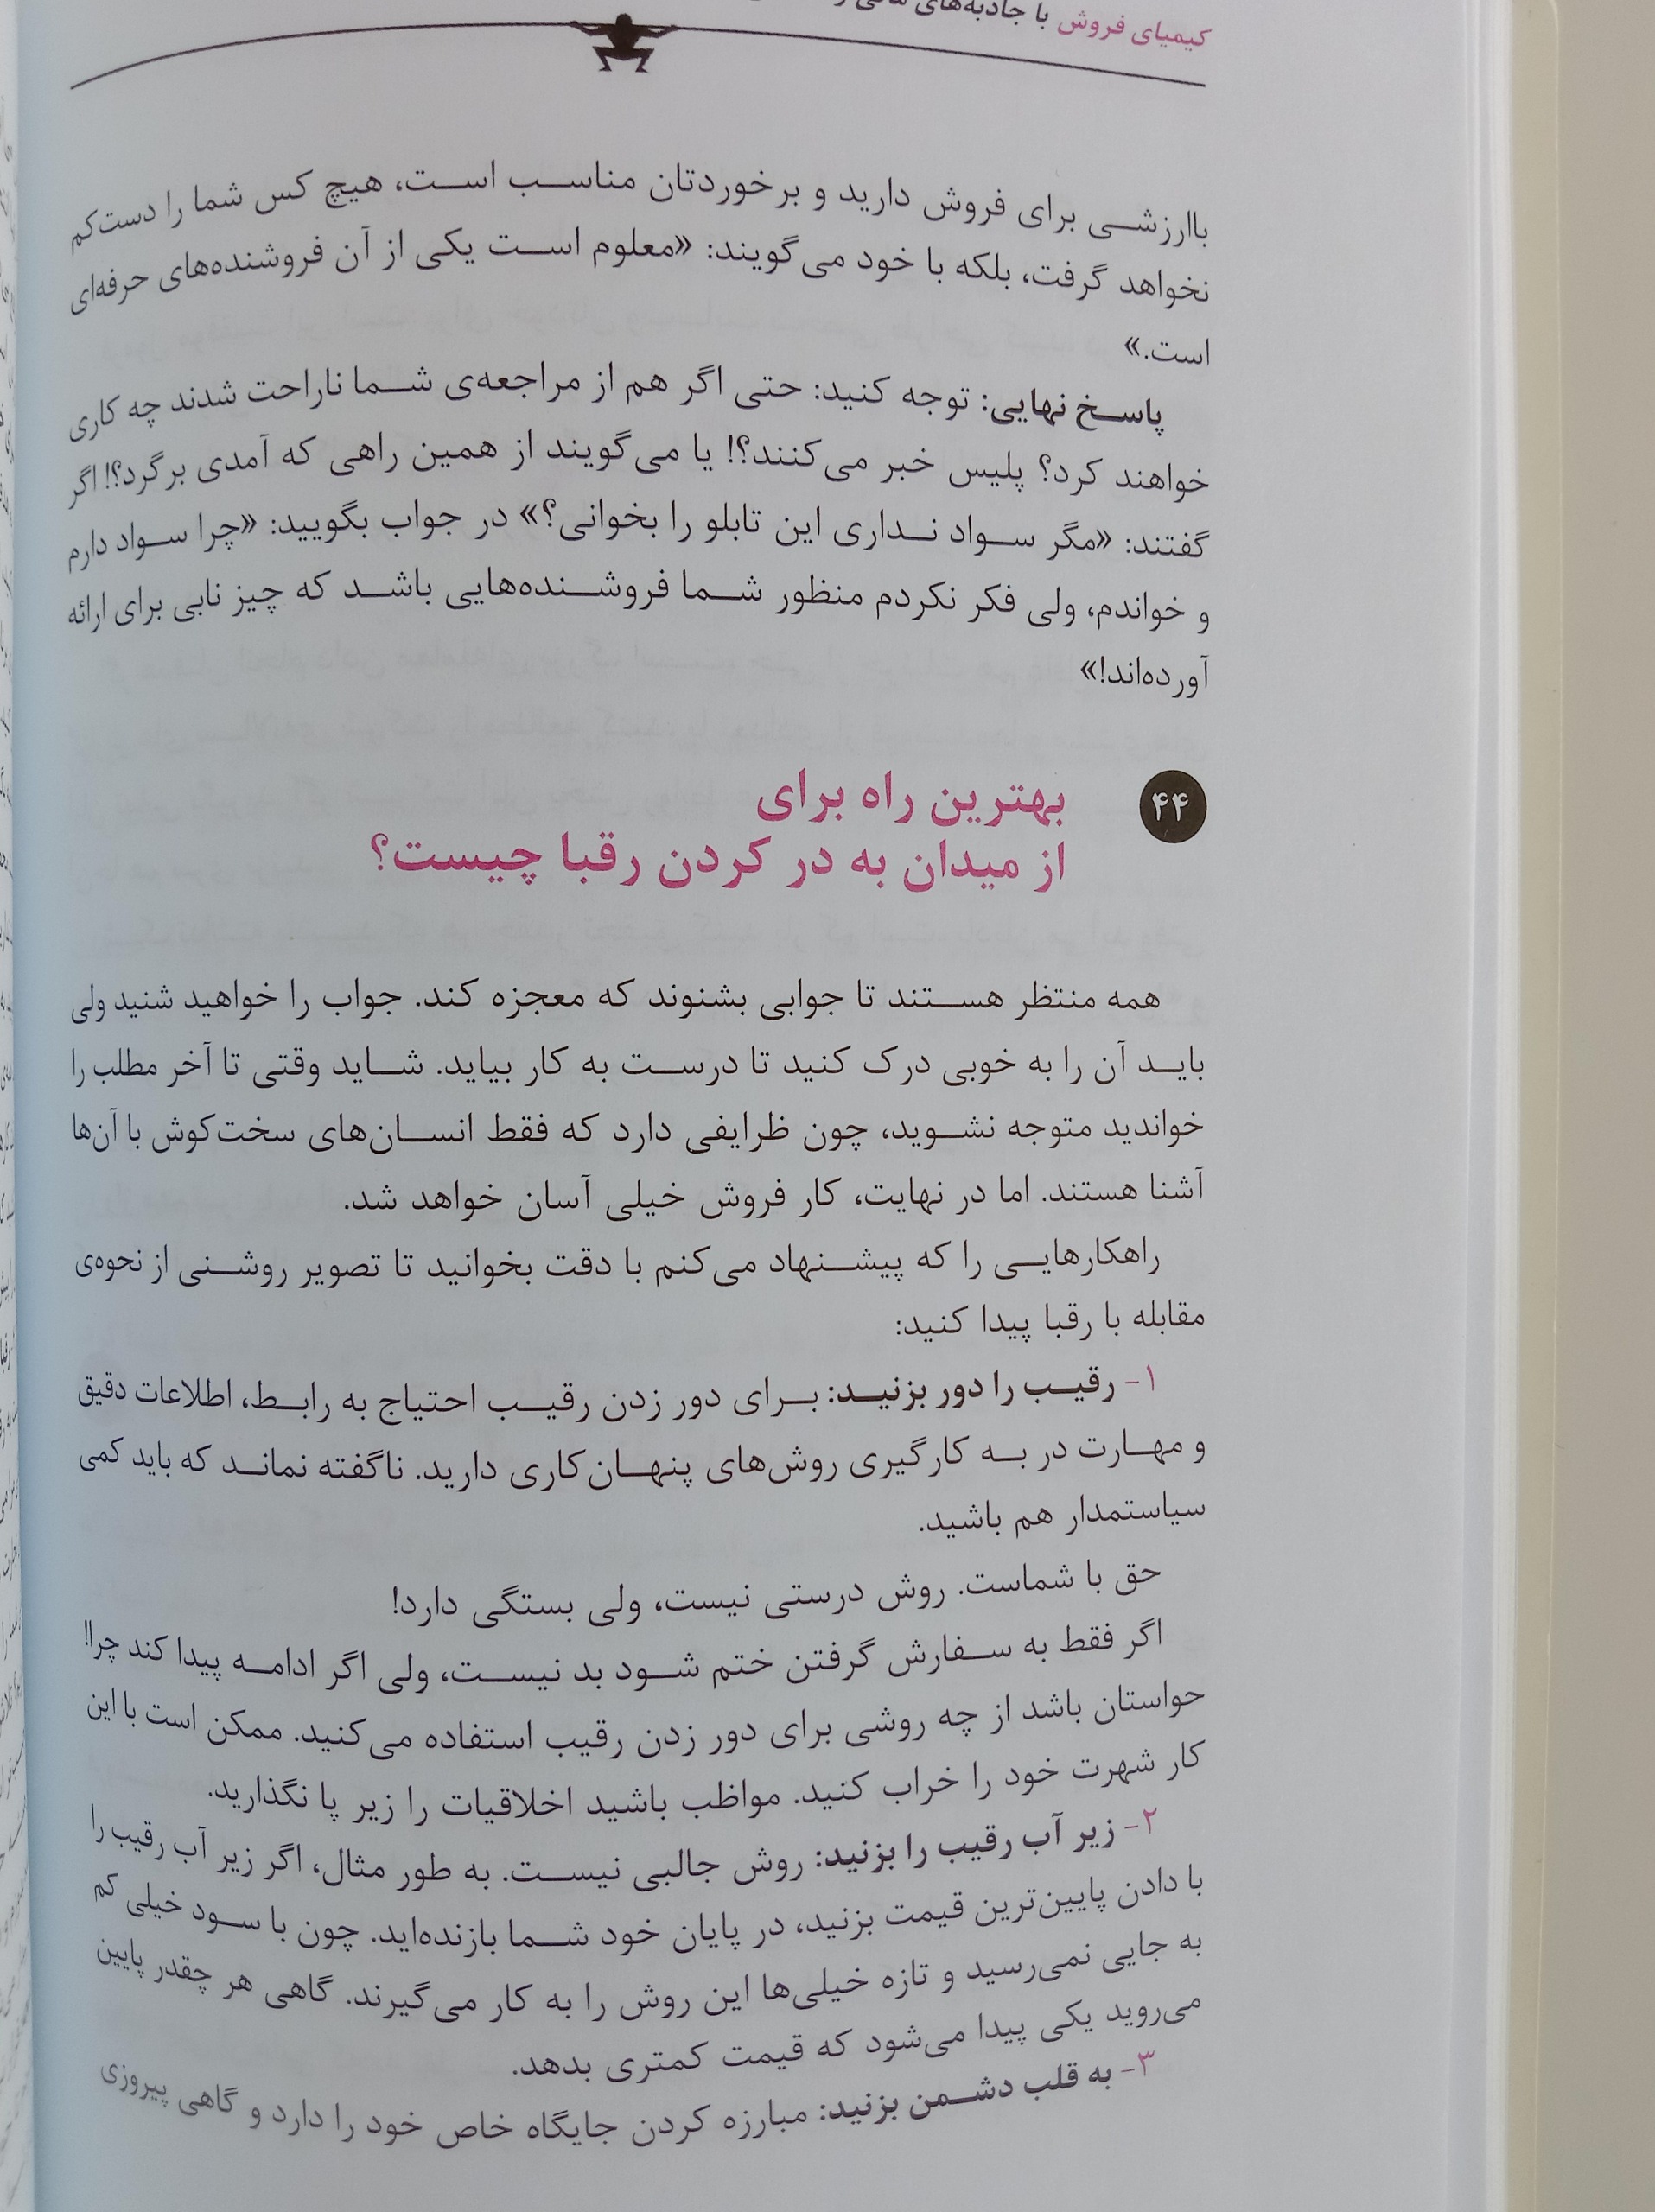 کیمیای فروش با جاذبه‌های
باارزشی برای فروش دارید و برخوردتان مناسب است، هیچ کس شما را دست‌کم
نخواهد گرفت، بلکه با خود می‌گویند: «معلوم است یکی از آن فروشنده‌های حرفه‌ای
است.»
پاسخ نهایی: توجه کنید: حتی اگر هم از مراجعه‌ی شما ناراحت شدند چه کاری
خواهند کرد؟ پلیس خبر می‌کنند؟! یا می‌گویند از همین راهی که آمدی برگرد؟! اگر
گفتند: «مگر سواد نداری این تابلو را بخوانی؟» در جواب بگویید: «چرا سواد دارم
و خواندم، ولی فکر نکردم منظور شما فروشنده‌هایی باشد که چیز نابی برای ارائه
آورده‌اند!»
۴۴
بهترین راه برای
از میدان به در کردن رقبا چیست؟
همه منتظر هستند تا جوابی بشنوند که معجزه کند. جواب را خواهید شنید ولی
باید آن را به خوبی درک کنید تا درست به کار بیاید. شاید وقتی تا آخر مطلب را
خواندید متوجه نشوید، چون ظرایفی دارد که فقط انسان‌های سخت‌کوش با آن‌ها
آشنا هستند. اما در نهایت، کار فروش خیلی آسان خواهد شد.
راهکارهایی را که پیشنهاد می‌کنم با دقت بخوانید تا تصویر روشنی از نحوه‌ی
مقابله با رقبا پیدا کنید:
۱- رقیب را دور بزنید: برای دور زدن رقیب احتیاج به رابط، اطلاعات دقیق
و مهارت در به کارگیری روش‌های پنهان‌کاری دارید. ناگفته نماند که باید کمی
سیاستمدار هم باشید.
حق با شماست. روش درستی نیست، ولی بستگی دارد!
اگر فقط به سفارش گرفتن ختم شود بد نیست، ولی اگر ادامه پیدا کند چرا!
حواستان باشد از چه روشی برای دور زدن رقیب استفاده می‌کنید. ممکن است با این
کار شهرت خود را خراب کنید. مواظب باشید اخلاقیات را زیر پا نگذارید.
۲- زیر آب رقیب را بزنید: روش جالبی نیست. به طور مثال، اگر زیر آب رقیب را
با دادن پایین‌ترین قیمت بزنید، در پایان خود شما بازنده‌اید. چون با سود خیلی کم
به جایی نمی‌رسید و تازه خیلی‌ها این روش را به کار می‌گیرند. گاهی هر چقدر پایین
می‌روید یکی پیدا می‌شود که قیمت کمتری بدهد.
۳- به قلب دشمن بزنید: مبارزه کردن جایگاه خاص خود را دارد و گاهی پیروزی